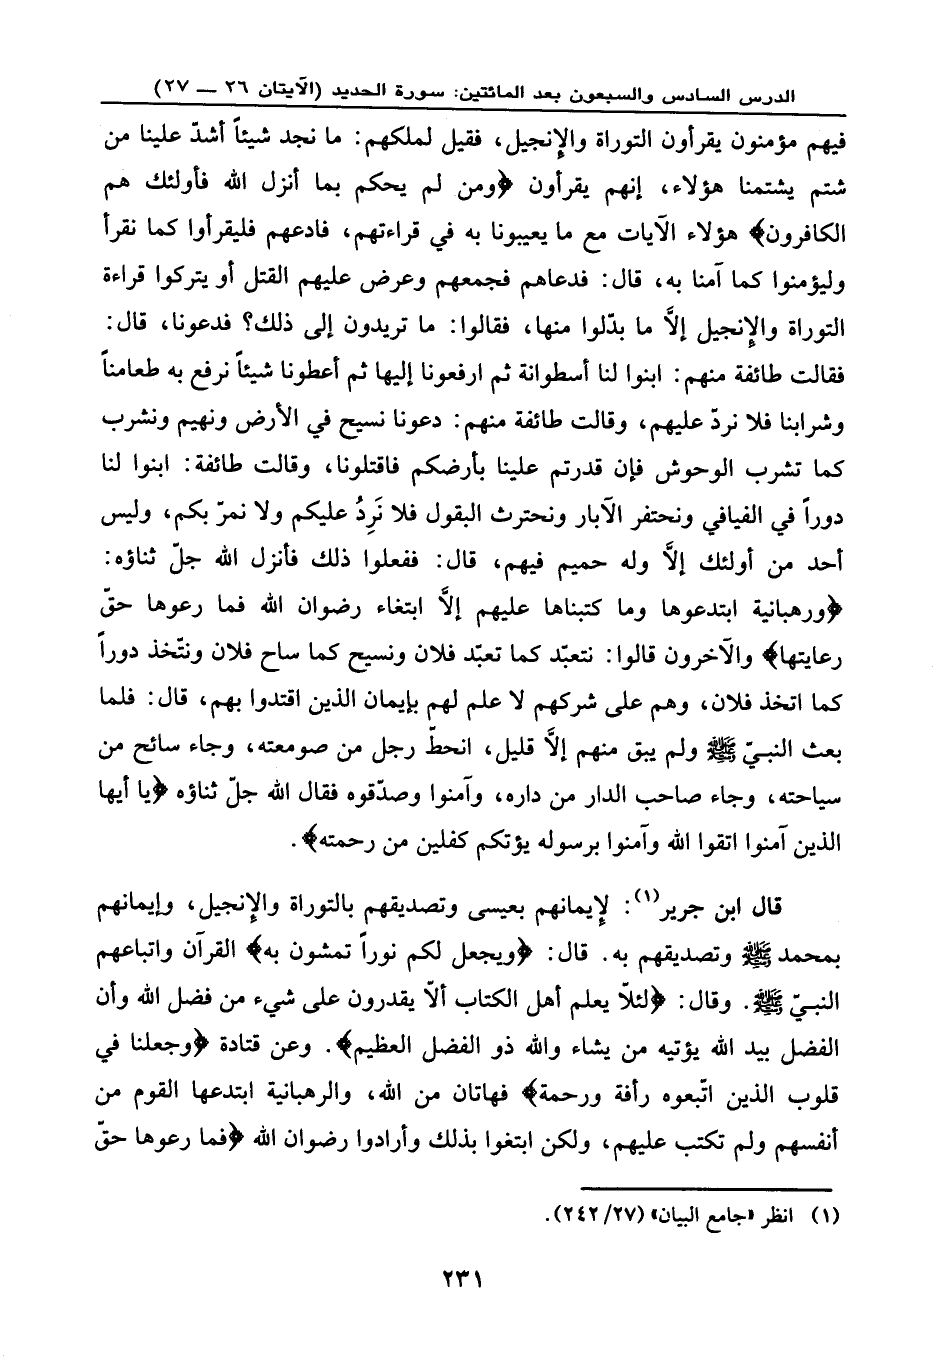 الدرس السادس والسبعون بعد المائتين: سورة الحديد (الآيتان ٢٦ — ٢٧)
فيهم مؤمنون يقرأون التوراة والإنجيل، فقيل لملكهم: ما نجد شيئاً أشدّ علينا من
شتم يشتمنا هؤلاء، إنهم يقرأون ﴿ومن لم يحكم بما أنزل الله فأولئك هم
الكافرون﴾ هؤلاء الآيات مع ما يعيبونا به في قراءتهم، فادعهم فليقرأوا كما نقرأ
وليؤمنوا كما آمنا به، قال: فدعاهم فجمعهم وعرض عليهم القتل أو يتركوا قراءة
التوراة والإنجيل إلاَّ ما بدّلوا منها، فقالوا: ما تريدون إلى ذلك؟ فدعونا، قال:
فقالت طائفة منهم: ابنوا لنا أسطوانة ثم ارفعونا إليها ثم أعطونا شيئاً نرفع به طعامناً
وشرابنا فلا نردّ عليهم، وقالت طائفة منهم: دعونا نسيح في الأرض ونهيم ونشرب
كما تشرب الوحوش فإن قدرتم علينا بأرضكم فاقتلونا، وقالت طائفة: ابنوا لنا
دوراً في الفيافي ونحتفر الآبار ونحترث البقول فلا نَرِدُ عليكم ولا نمرّ بكم، وليس
أحد من أولئك إلاَّ وله حميم فيهم، قال: ففعلوا ذلك فأنزل الله جلّ ثناؤه:
﴿ورهبانية ابتدعوها وما كتبناها عليهم إلاَّ ابتغاء رضوان الله فما رعوها حقّ
رعايتها﴾ والآخرون قالوا: نتعبّد كما تعبّد فلان ونسيح كما ساح فلان ونتّخذ دوراً
كما اتخذ فلان، وهم على شركهم لا علم لهم بإيمان الذين اقتدوا بهم، قال: فلما
بعث النبيّ ﷺ ولم يبق منهم إلاَّ قليل، انحطّ رجل من صومعته، وجاء سائح من
سياحته، وجاء صاحب الدار من داره، وآمنوا وصدّقوه فقال الله جلّ ثناؤه ﴿يا أيها
الذين آمنوا اتقوا الله وآمنوا برسوله يؤتكم كفلين من رحمته﴾.
قال ابن جرير(١): لإيمانهم بعيسى وتصديقهم بالتوراة والإنجيل، وإيمانهم
بمحمد ﷺ وتصديقهم به. قال: ﴿ويجعل لكم نوراً تمشون به﴾ القرآن واتباعهم
النبيّ ﷺ. وقال: ﴿لئلاّ يعلم أهل الكتاب ألاّ يقدرون على شيء من فضل الله وأن
الفضل بيد الله يؤتيه من يشاء والله ذو الفضل العظيم﴾. وعن قتادة ﴿وجعلنا في
قلوب الذين اتّبعوه رأفة ورحمة﴾ فهاتان من الله، والرهبانية ابتدعها القوم من
أنفسهم ولم تكتب عليهم، ولكن ابتغوا بذلك وأرادوا رضوان الله ﴿فما رعوها حقّ
(١) انظر «جامع البيان» (٢٧/ ٢٤٢).
٢٣١